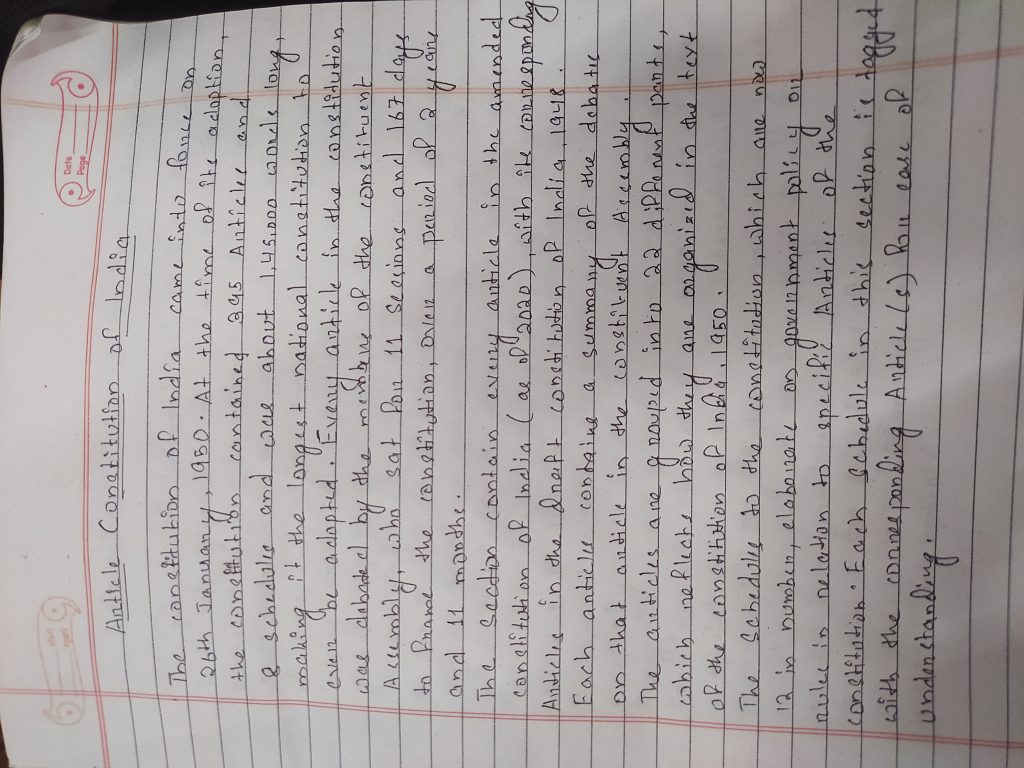 Date
Page
Article Constitution of India
The constitution of India came into force on
26th January, 1950. At the time of its adoption,
the constitution contained 395 Articles and
8 schedule and were about 1,45,000 words long,
making it the longest national constitution to
ever be adopted. Every article in the constitution
was debated by the members of the constituent
Assembly, who sat for 11 sessions and 167 days
to frame the constitution, over a period of 2 years
and 11 months.
The section contain every article in the amended
constitution of India (as of 2020), with its corresponding
Article in the draft constitution of India, 1948.
Each article contains a summary of the debate
on that article in the constituent Assembly.
The articles are grouped into 22 different parts,
which reflects how they are organized in the text
of the constitution of India, 1950.
The schedules to the constitution, which are now
12 in number, elaborate on government policy or
rules in relation to specific Article of the
constitution. Each schedule in this section is tagged
with the corresponding Article(s) for ease of
understanding.